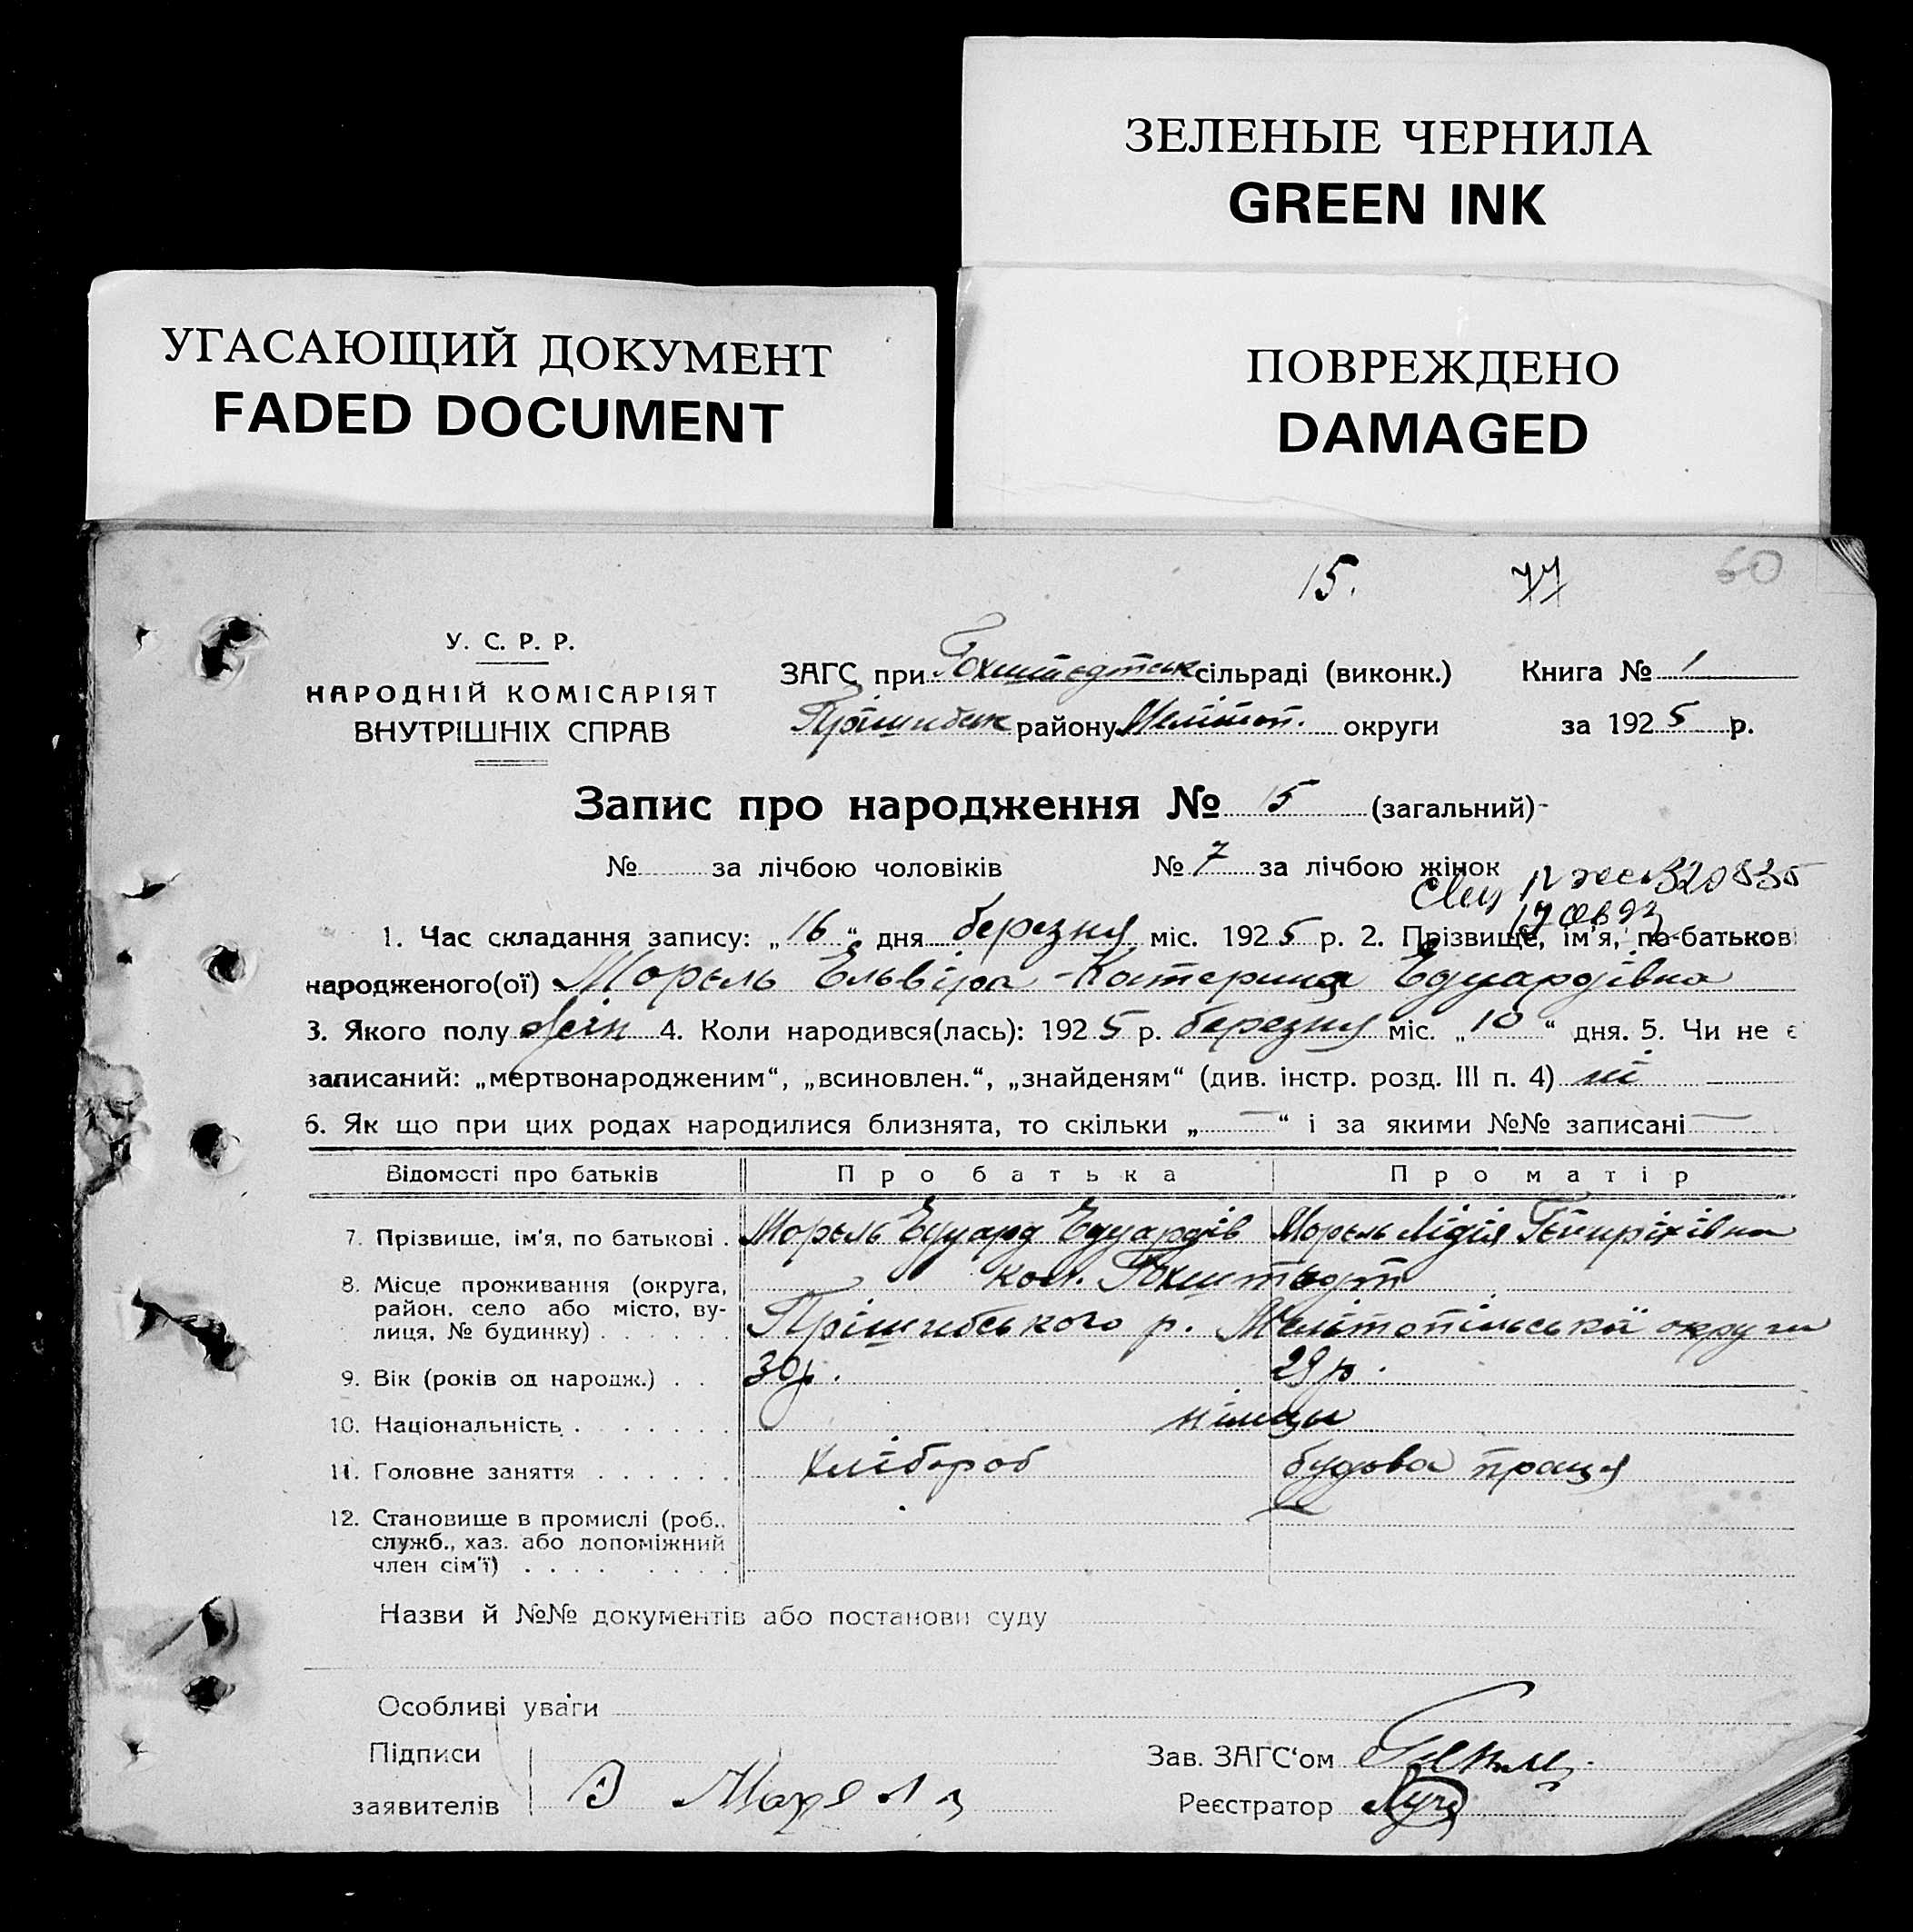 ЗЕЛЕНЫЕ ЧЕРНИЛА
GREEN INK
УГАСАЮЩИЙ ДОКУМЕНТ
FADED DOCUMENT
ПОВРЕЖДЕНО
DAMAGED
15. 77 60
У. С. Р. Р.
НАРОДНІЙ КОМІСАРІЯТ
ВНУТРІШНІХ СПРАВ
ЗАГС при Гохштедтськ сільраді (виконк.) Книга № 1
Прішибск району Меліт округи за 1925 р.
Запис про народження № 15 (загальний)
№ за лічбою чоловіків № 7 за лічбою жінок
1. Час складання запису: „16“ дня березня міс. 1925 р. 2. Прізвище, ім'я, по-батькові
народженого(ої) Морель Ельвіра-Катерина Едуардівна
3. Якого полу жін 4. Коли народився(лась): 1925 р. березня міс. „10“ дня. 5. Чи не є
записаний: „мертвонародженим“, „всиновлен.“, „знайденям“ (див. інстр. розд. III п. 4) ні
6. Як що при цих родах народилися близнята, то скільки „—“ і за якими №№ записані —
Відомості про батьків Про батька Про матір
7. Прізвище, ім'я, по батькові . Морель Едуард Едуардів Морель Лідія Генріхівна
8. Місце проживання (округа, кол. Гохштедт
район, село або місто, ву-
лиця, № будинку) . . . . . . Прішибського р. Мелітопільської округи
9. Вік (років од народж.) . . 30 р. 29 р.
10. Національність . . . . . . . німци
11. Головне заняття . . . . . . хлібороб будова праця
12. Становище в промислі (роб.,
служб., хаз. або допоміжний
член сім'ї) . . . . . . . .
Назви й №№ документів або постанови суду
Особливі уваги
Підписи Зав. ЗАГС'ом
заявителів Реєстратор